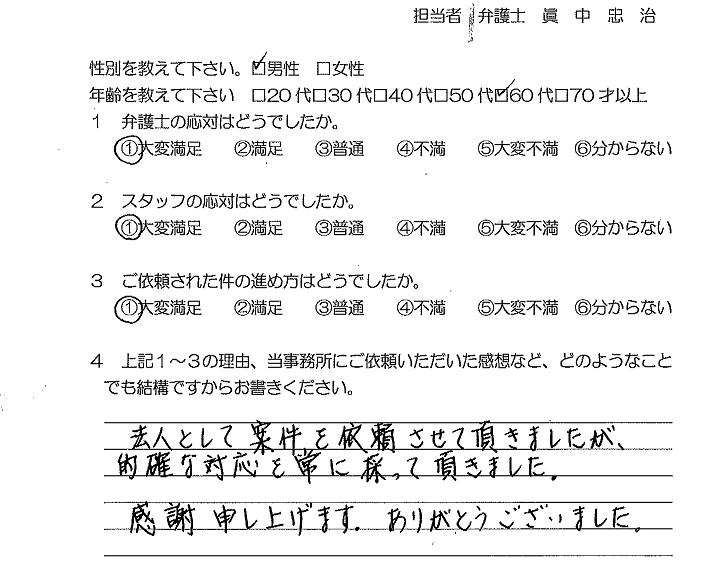 担当者 弁護士 眞 中 忠 治
性別を教えて下さい。☑男性 □女性
年齢を教えて下さい □20代□30代□40代□50代☑60代□70才以上
1 弁護士の応対はどうでしたか。
①大変満足 ②満足 ③普通 ④不満 ⑤大変不満 ⑥分からない
2 スタッフの応対はどうでしたか。
①大変満足 ②満足 ③普通 ④不満 ⑤大変不満 ⑥分からない
3 ご依頼された件の進め方はどうでしたか。
①大変満足 ②満足 ③普通 ④不満 ⑤大変不満 ⑥分からない
4 上記1～3の理由、当事務所にご依頼いただいた感想など、どのようなこと
でも結構ですからお書きください。
法人として案件を依頼させて頂きましたが、
的確な対応を常に採って頂きました。
感謝申し上げます。ありがとうございました。